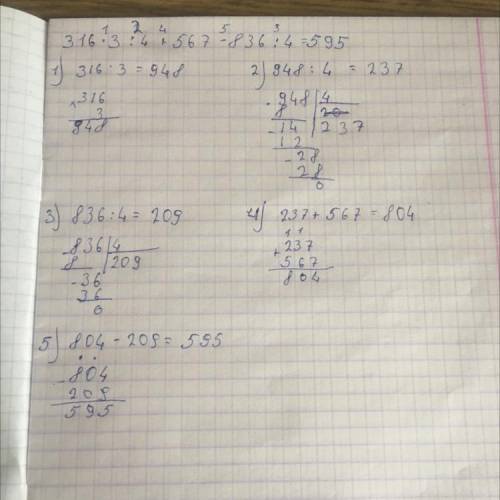 1 2 4 5 3
316 · 3 : 4 + 567 - 836 : 4 = 595
1) 316 · 3 = 948
× 316
3
948
2) 948 : 4 = 237
- 948 | 4
8 237
- 14
12
- 28
28
0
3) 836 : 4 = 209
- 836 | 4
8 209
- 36
36
0
4) 237 + 567 = 804
1 1
+ 237
567
804
5) 804 - 209 = 595
. .
- 804
209
595